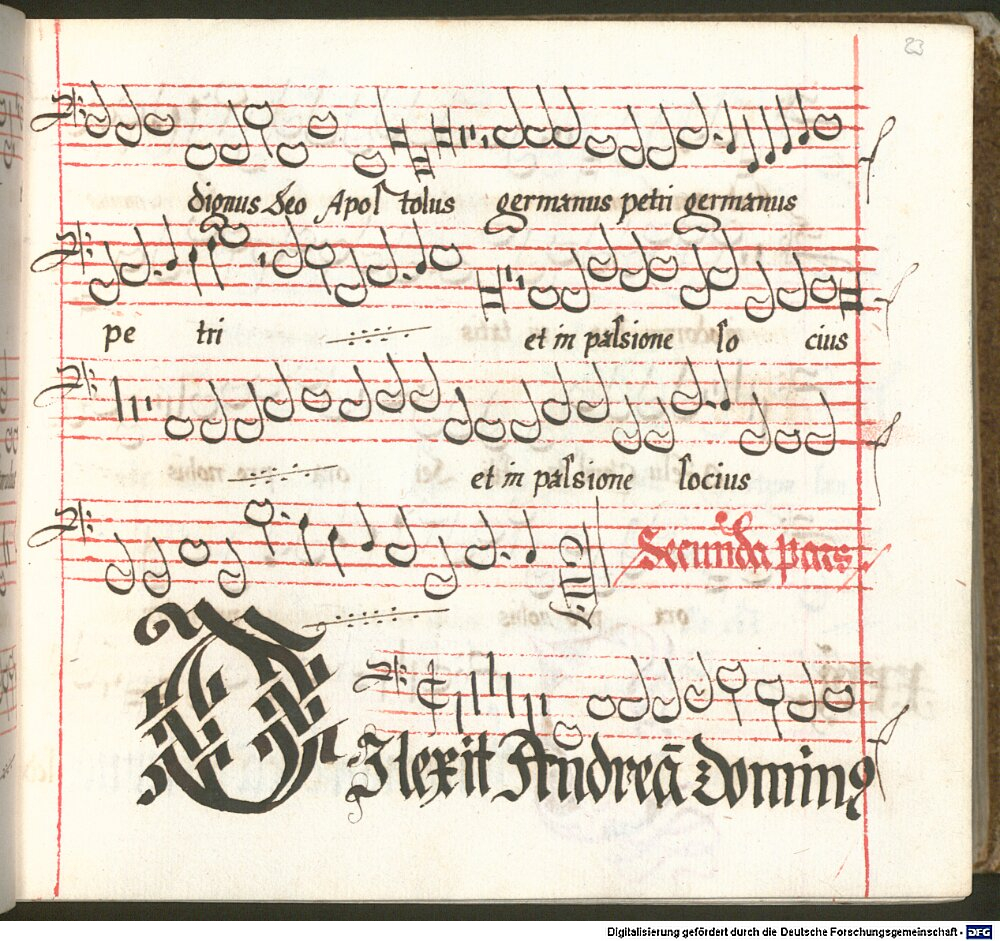 23
dignus Deo Apos tolus germanus petri germanus
pe tri et in passione so cius
et in passione socius
Secunda pars
Dilexit Andreã Dominꝰ
Digitalisierung gefördert durch die Deutsche Forschungsgemeinschaft - DFG